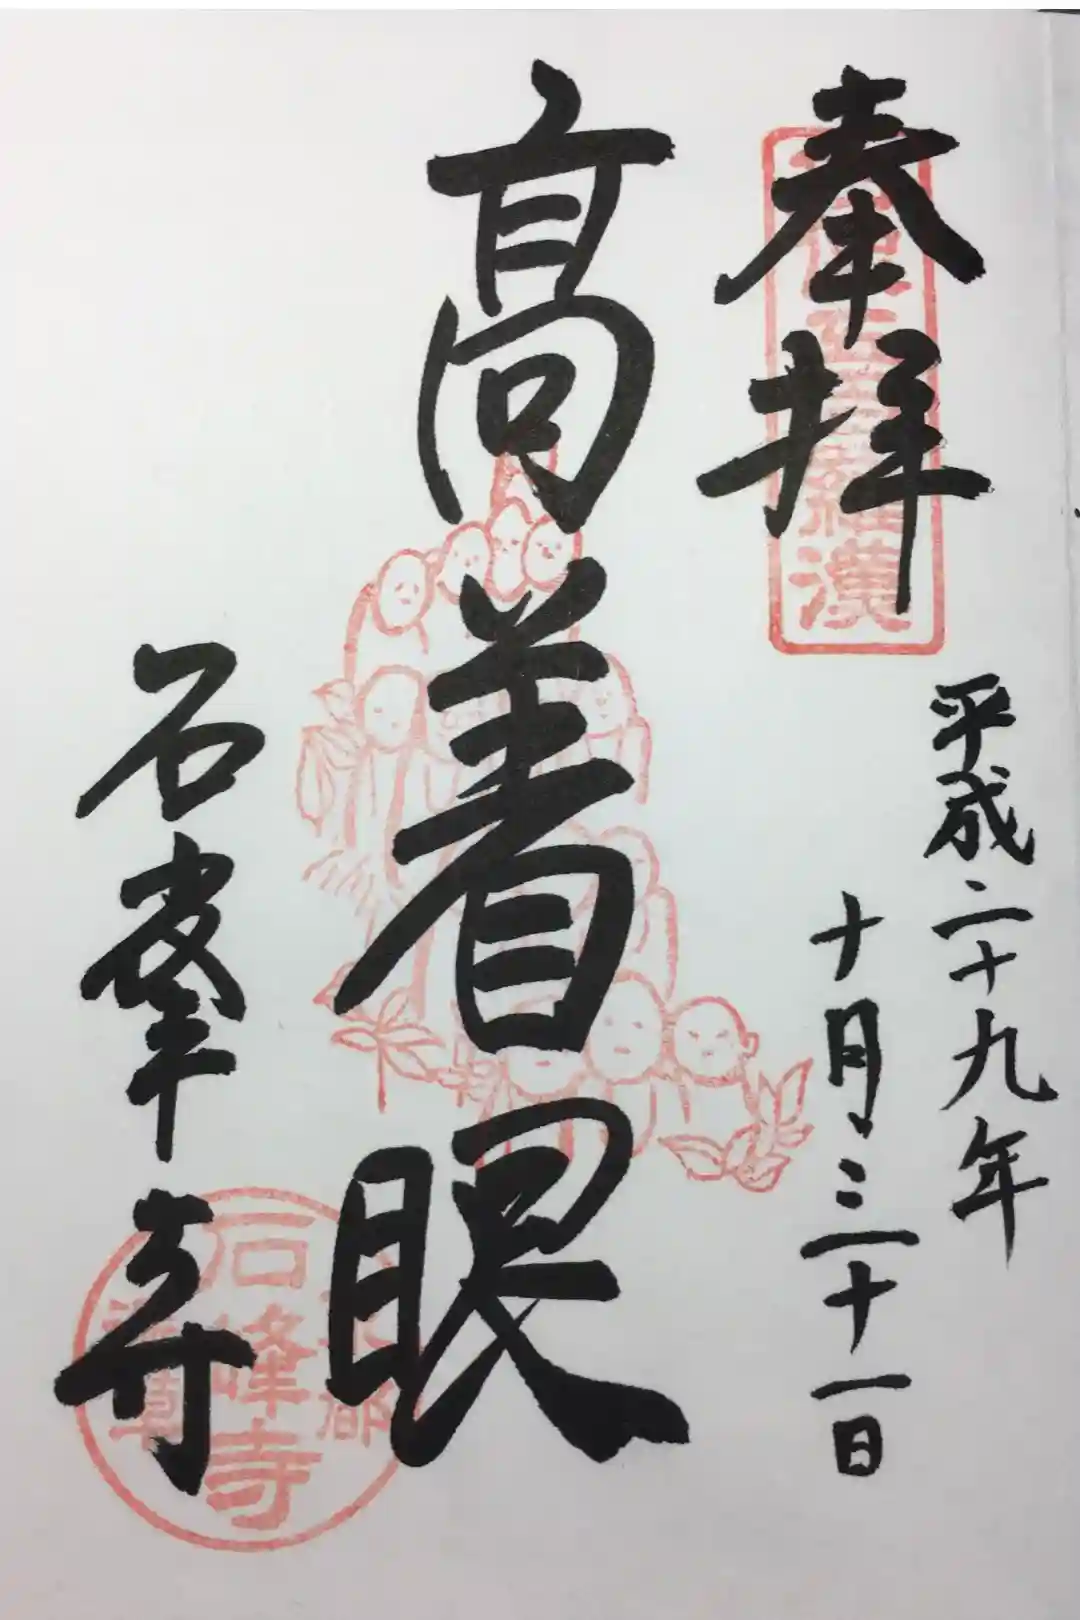 奉拝
平成二十九年
十月三十一日
高着眼
石峯寺
羅漢
京都
石峰寺
深草